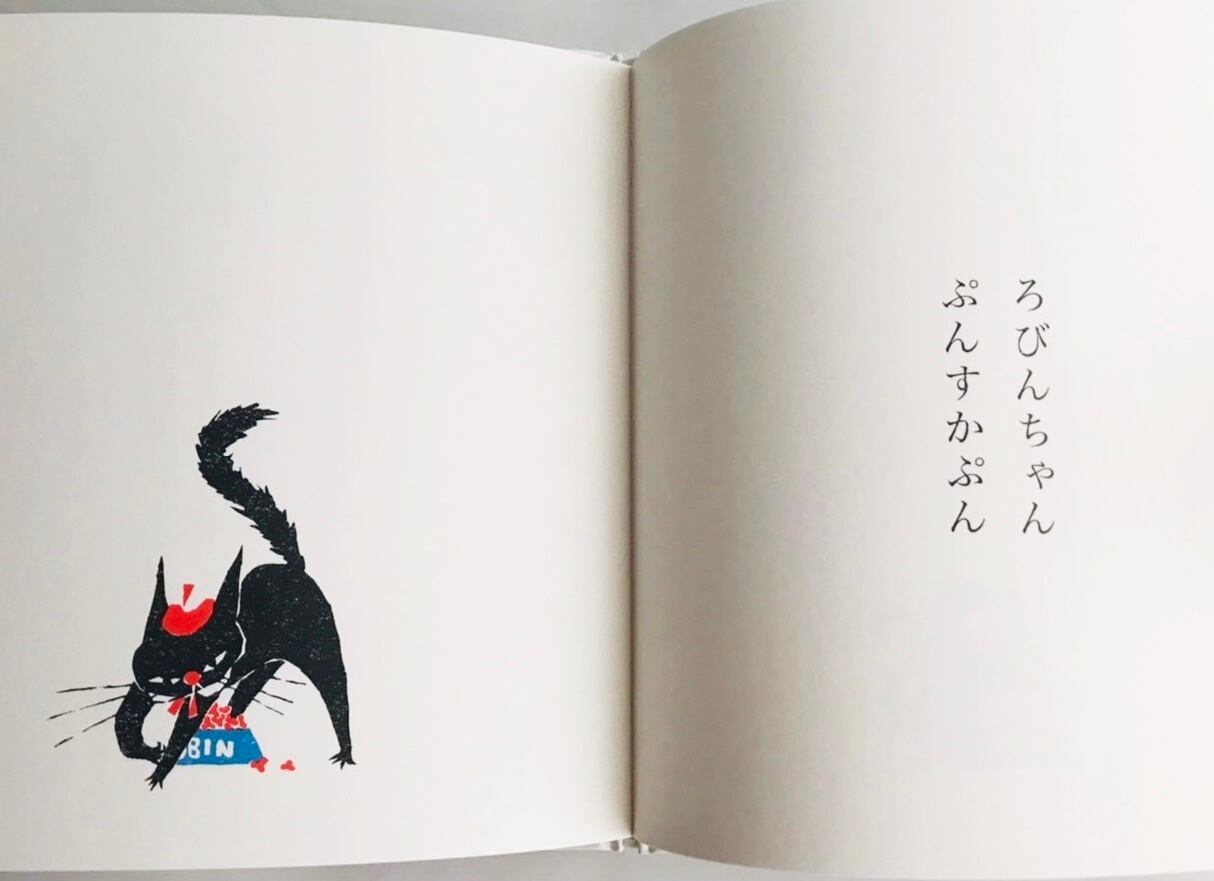 ろびんちゃん
ぷんすかぷん
BIN